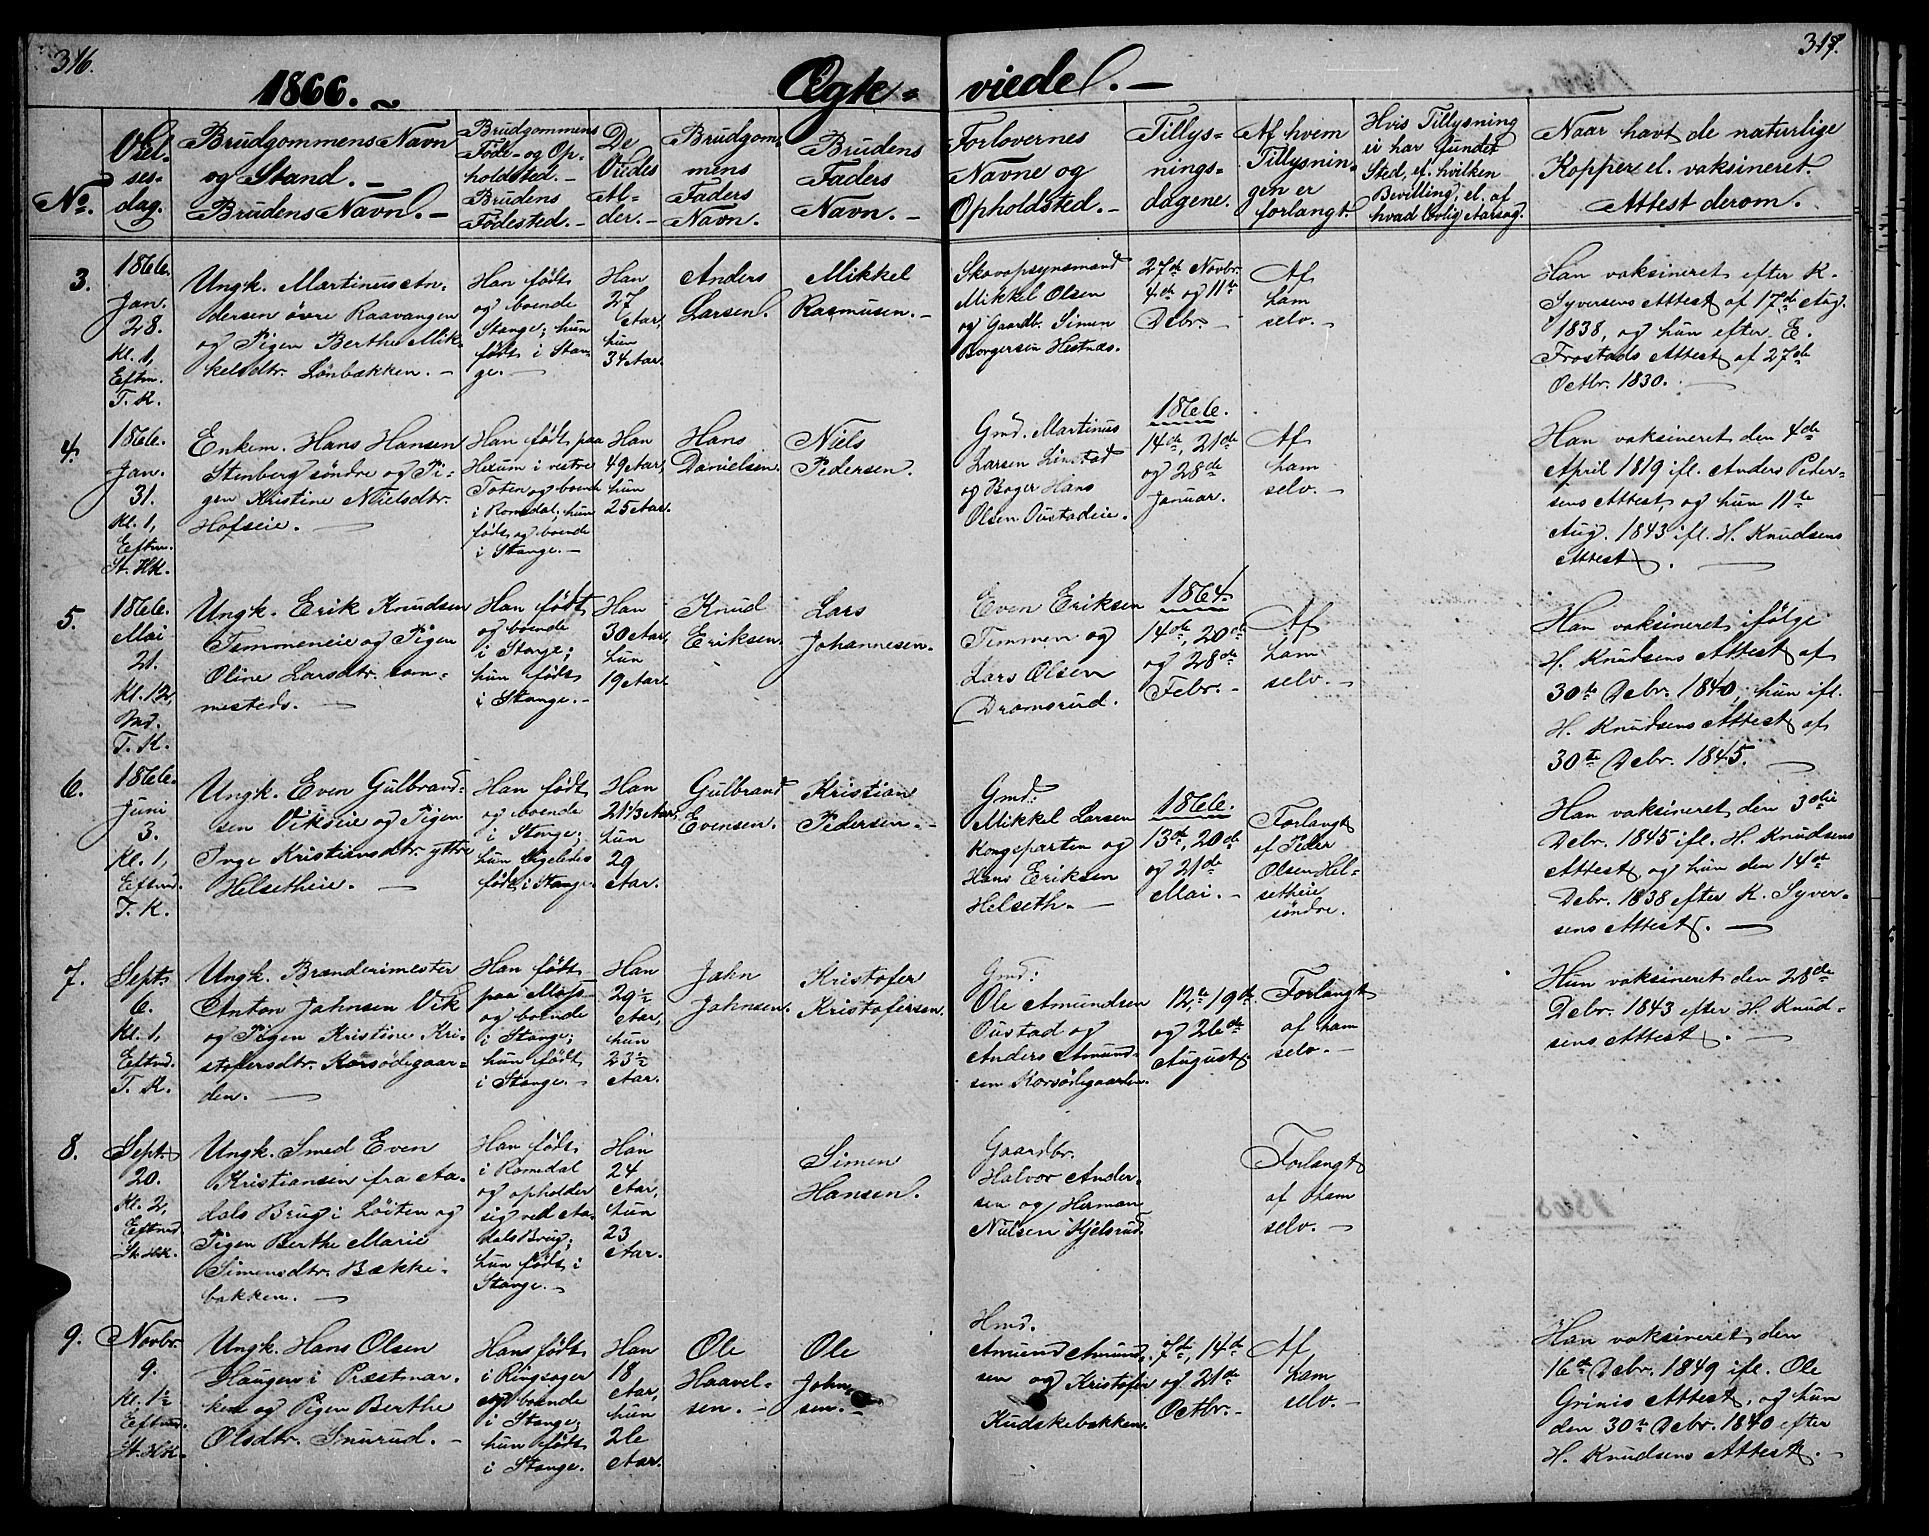 316.
317.
1866. ~
Ægte=
viede. —
No.
Viel-
ses-
dag.
Brudgommens Navn
og Stand. —
Brudens Navn. —
Brudgommens
Føde- og Op-
holdsted. —
Brudens
Fødested. —
De
Viedes
Al-
der. —
Brudgom-
mens
Faders
Navn. —
Brudens
Faders
Navn. —
Forlovernes
Navne og
Opholdsted. —
Tillys-
nings-
dagene.
Af hvem
Tillysnin-
gen er
forlangt.
Hvis Tillysning
ei har fundet
Sted, ef. hvilken
Bevilling, el. af
hvad lovlig Aarsag.
Naar havt de naturlige
Kopper el. vaksineret.
Attest derom.
3.
1866.
Jan.
28.
Kl. 1,
Eftm.
T. K.
Ungk. Martinus An-
dersen øvre Raavangen
og Pigen Berthe Mik-
kelsdtr. Lønbækken. —
Han født
og boende
Stange; hun
født i Stan-
ge. —
Han
27
Aar,
hun
34 Aar.
Anders
Larsen.
Mikkel
Rasmusen. —
Skovopsynsmand
Mikkel Olsen
og Gaardb. Simen
Borgersen Hestnæs.
27de Novbr.
4de og 11te
Debr. —
Af
ham
selv. —
Han vaksineret efter K.
Syversens Attest af 17de Aug.
1838, og hun efter E.
Frostads Attest af 27de
Octbr. 1830. —
4.
1866.
Jan.
31.
Kl. 1,
Eftm.
St. HK.
Enkem. Hans Hansen
Stenberg søndre og Pi-
gen Kristine Nielsdtr.
Hofseie. —
Han født paa
Hexum i vestre
Toten og boende
i Romedal, hun
født og boende
i Stange. —
Han
49 Aar,
hun
25 Aar.
Hans
Danielsen.
Niels
Pedersen.
Gmd. Martinus
Larsen Linstad
og Bager Hans
Olsen Oustadeie.
1866.
14de, 21de
og 28de
Januar.
Af
ham
selv. —
Han vaksineret den 4de
April 1819 ifl. Anders Peder-
sens Attest, og hun 11te
Aug. 1843 ifl. H. Knudsens
Attest. —
5.
1866.
Mai
21.
Kl. 12,
Md.
T. K.
Ungk. Erik Knudsen
Temmeneie og Pigen
Oline Larsdtr. sam-
mesteds. —
Han født
og boende
i Stange;
hun født
i Stange. —
Han
30 Aar,
hun
19 Aar.
Knud
Eriksen.
Lars
Johannesen.
Even Eriksen
Temmen og
Lars Olsen
Dramsrud.
1864.
14de, 20de
og 28de
Febr. —
Af
ham
selv. —
Han vaksineret ifølge
H. Knudsens Attest af
30te Debr. 1840, hun ifl.
H. Knudsens Attest af
30te Debr. 1845. —
6.
1866.
Juni
3.
Kl. 1,
Eftmd.
T. K.
Ungk. Even Gulbrand-
sen Vikseie og Pigen
Inge Kristiansdtr. yttre
Helsetheie. —
Han født
og boende
i Stange;
hun ligeledes
født i Stange.
Han
21 1/3 Aar,
hun
29
Aar.
Gulbrand
Evensen.
Kristian
Pedersen. —
Gmd:
Mikkel Larsen
Kongeparten og
Hans Eriksen
Helseth. —
1866.
13de, 20de
og 21de
Mai. —
Forlangt
af Peder
Olsen Hel-
setheie
søndre.
Han vaksineret den 30te
Debr. 1845 ifl. H. Knudsens
Attest, og hun den 14de
Debr. 1838 efter K. Syver-
sens Attest. —
7.
Sept.
6.
Kl. 1,
Eftmd.
T. K.
Ungk. Brænderimester
Anton Jahnsen Vik
og Pigen Kristine Kri-
stofersdtr. Korsødegaar-
den. —
Han født
paa Moss
og boende
i Stange;
hun født
i Stange. —
Han
29 1/2
Aar,
hun
23 1/2
Aar.
Jahn
Jahnsen.
Kristofer
Kristofersen.
Gmd:
Ole Amundsen
Oustad og
Anders Amund-
sen Korsødegaarden.
12te, 19de
og 26de
August.
Forlangt
af ham
selv. —
Hun vaksineret den 28de
Debr. 1843 efter H. Knud-
sens Attest. —
8.
Sept.
20.
Kl. 2,
Eftmd.
St. HK.
Ungk. Smed Even
Kristiansen fra Aa-
dals Brug i Løiten og
Pigen Berthe Marie
Simensdtr. Bække-
bakken. —
Han født
i Romedal
og opholder
sig ved Aa-
dals Brug;
hun født i
Stange. —
Han
24
Aar,
hun
23
Aar.
Simen
Hansen.
Gaardbr.
Halvor Ander-
sen og Herman
Nielsen Kjelsrud.
Forlangt
af ham
selv. —
9.
Novbr.
9.
Kl. 1 1/2
Eftmd.
St. HK.
Ungk. Hans Olsen
Haugen i Præstmar-
ken og Pigen Berthe
Olsdtr. Snurud. —
Hans født
i Ringsager
og boende
i Stange;
hun født
i Stange.
Han
18
Aar,
hun
26
Aar.
Ole
Haavel-
sen. —
Ole
John-
sen. —
Hmd.
Amund Amund-
sen og Kristofer
Kudskebakken.
7de, 14de
og 21de
Octbr. —
Af
ham
selv. —
Han vaksineret den
16de Debr. 1849 ifl. Ole
Grinis Attest, og hun
den 30te Debr. 1840 efter
H. Knudsens Attest. —